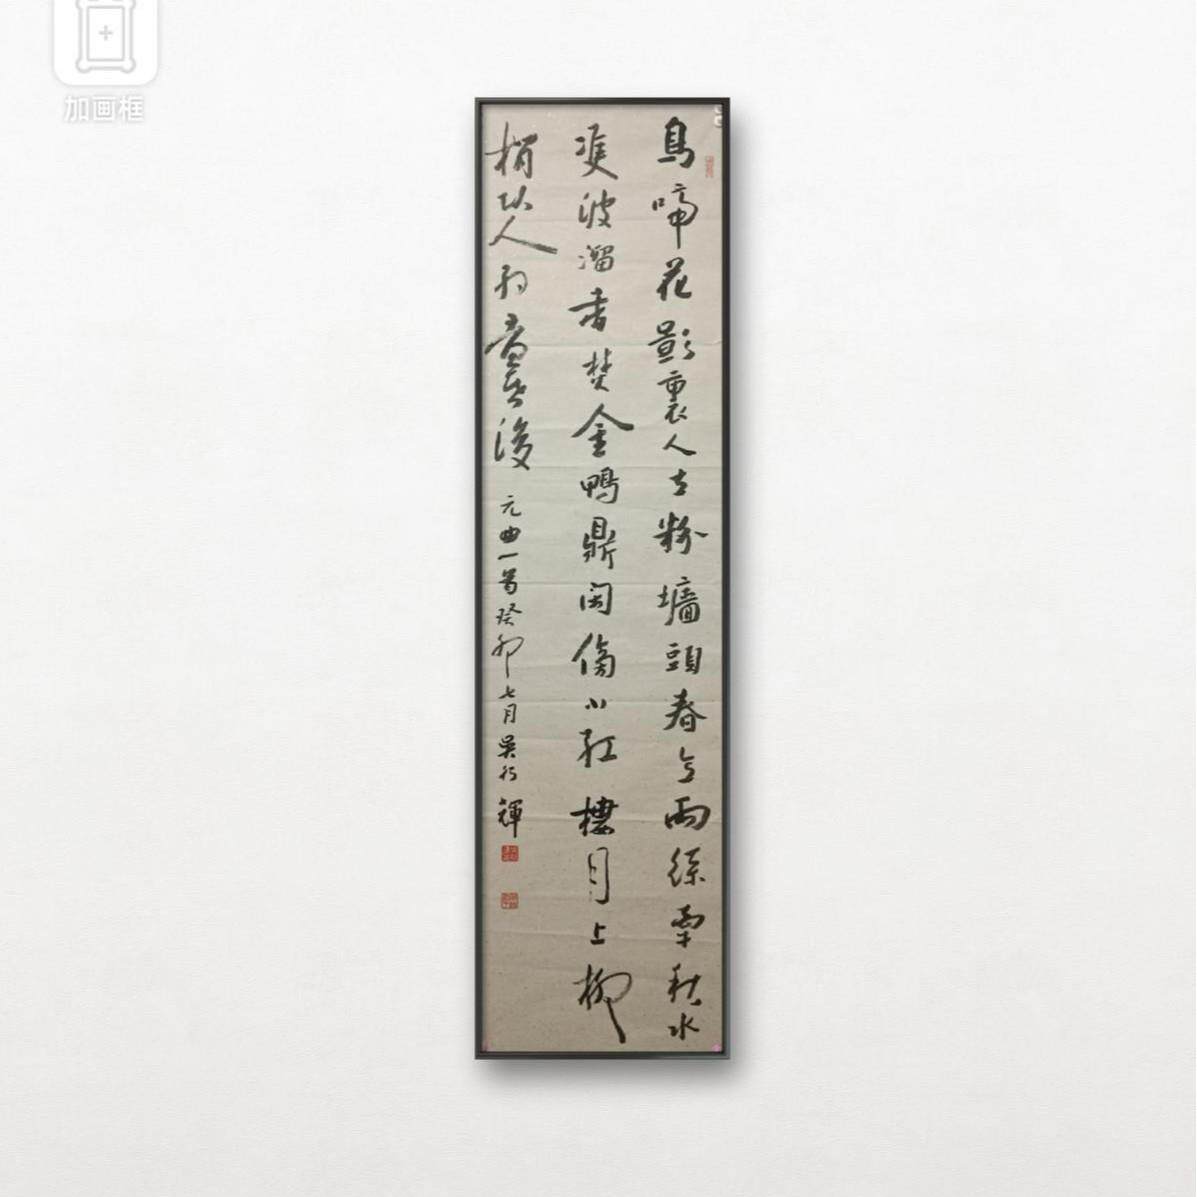 加画框
鳥啼花影裏人立粉墻頭春意兩絲牽秋水
雙波溜香焚金鴨鼎閑傍小紅樓月上柳
梢人約黃昏後
元曲一首癸卯七月吴行輝